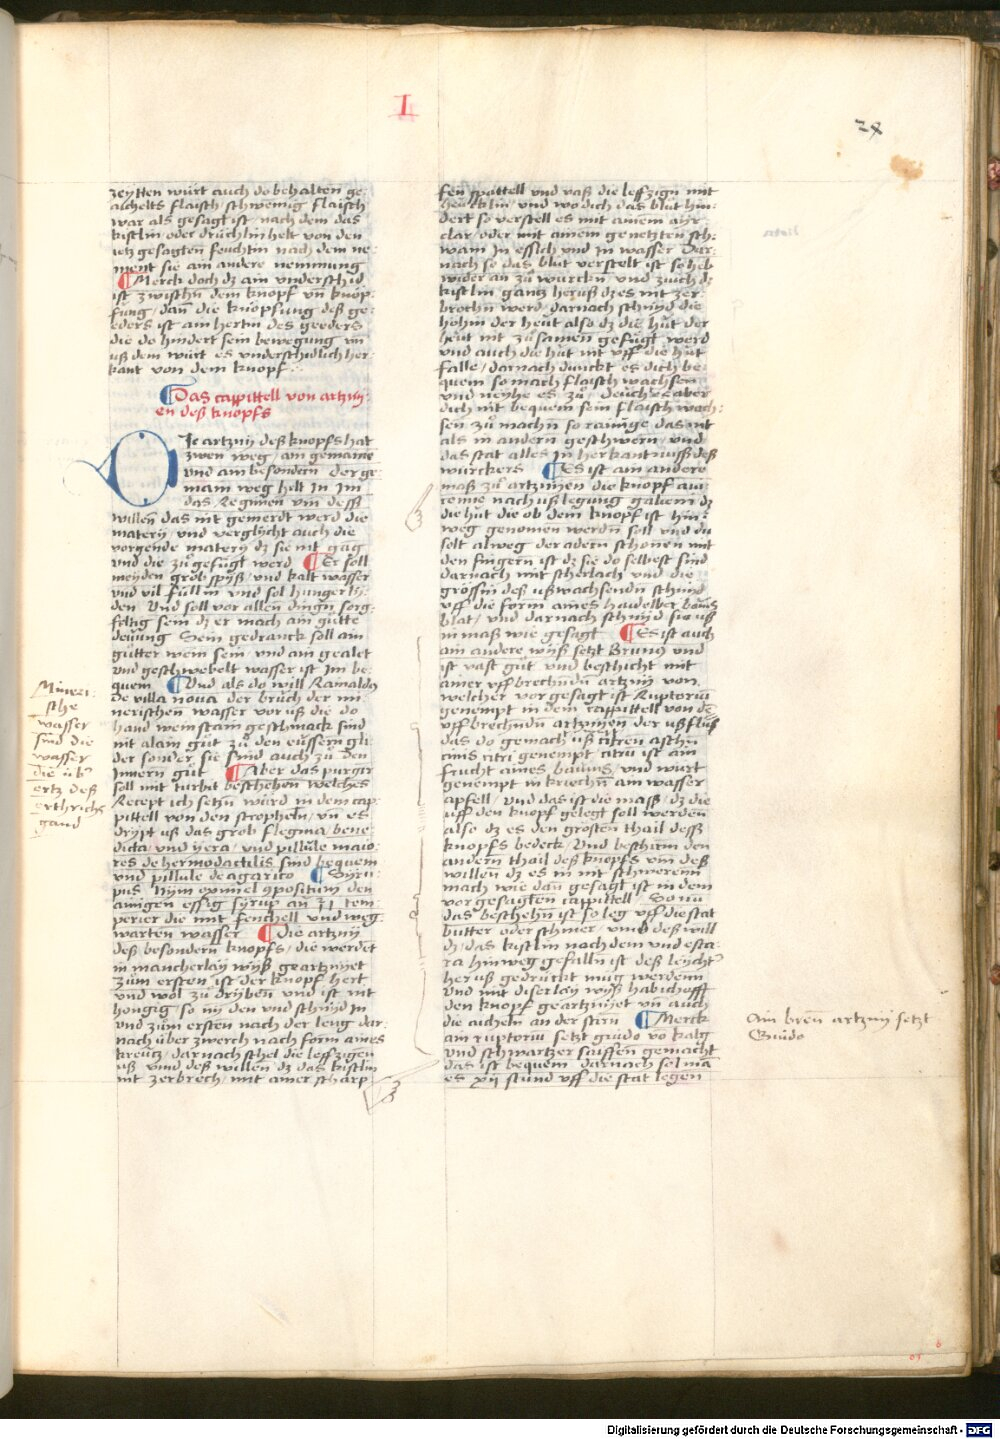 I
24
zeytten würt auch do behalten ge-
aichelts flaisch schweinig flaisch
war als gesagt ist nach dem das
kistlin oder drüchlin helt von den
ietz gesagten feuchtin nach dem ne-
ment sie ain andere nemmung
¶ Merck doch dz ain underschid
ist zwischn dem knopf vn̄ knöp-
fung / dan̄ die knöpfung deß ge-
eders ist ain hertin des geeders
die do hindert sein bewegung vn̄
uß dem würt es underschidlich her-
kant von dem knopf.
¶ Das cappittell von artzny-
en deß knopfs
Die artzny deß knopfs hat
zwen weg / ain gemaine
und ain besondern der ge-
main weg helt in im
das Regimen um̄ desß
willen das nit gemerdt werd die
matery / und verglycht auch die
vorgende matery dz sie nit gāg
und die zu gefügt werd ¶ Er soll
meyden grob spyß / und kalt wasser
und vil füllin und sol hunger ly-
den Und soll vor allen dingn sorg-
feltig sein dz er mach ain gütte
deuung Sein gedranck soll ain
gütter wein sein und ain gealet
und geschwebelt wasser ist im be-
quem ¶ Und als do will Rainaldꝰ
de villa noua der brüch der mi-
nerischen wasser vor uß die do
hand weinstain geschmack sind
nit alain güt zu den eüssern gli-
der sonder sie sind auch zu den
Innern güt ¶ Aber das purgirn
soll mit turbit beschehen welches
Recept ich setzn würd in dem cap-
pittell von den scropheln / vn̄ es
drypt uß das grob flegma / bene-
dicta / und yera / und pillule maio-
res de hermodactilis sind bequem
und pillule de agarico ¶ Syru-
pus Nym oximel cōpositum den
ainigen essig syrup an zj tem-
perier die mit fenchell und weg-
warten wasser ¶ Die artzny
deß besondern knopfs / die werdet
in mancherlay wyß geartznyet
zum ersten ist der knopf hert
und wol zu dryben und ist nit
hongig / so ny den und schnyd in
und zum ersten nach der leng dar-
nach über zwerch nach form aines
kreutz / darnach schel die leffzigen
uß und deß willen dz das kistlin
nit zerbrech / mit ainer scharp-
fen spattell und vaß die leffzign mit
heucklin / und wo dich das blüt hin-
dert so verstell es mit ainem ayr-
clar / oder mit ainem genetzten sch-
wam in essich und in wasser Dar-
nach so das blut verstelt ist so heb
wider an zu würckn und zuich dz
kistlin gantz heruß dz es nit zer-
brochn werd / darnach schnyd die
höhin der heut also dz die hut der
heut nit zusamen gefügt werd
und auch die hut nit uff die hut
falle / darnach dunckt es dich be-
quem so mach flaisch wachsen
und neyhe es zu Deucht es aber
dich nit bequem sein flaisch wach-
sen zu machn so rainge das nit
als in andern geschwern / und
das stat alles in herkantnuß deß
würckers ¶ Es ist ain andere
maß zu artznyen die knopf aui-
cenne nach ußlegung galieni dz
die hut die ob dem knopf ist hin-
weg genomen werdn soll und du
solt alweg der adern schonen mit
den fingern ist dz sie do selbest sind
darnach mit scherlach und die
grössin deß ußwachsendn schnyd
uff die form aines haidelber boms
blat / und darnach schnyd sie uß
in maß wie gesagt ¶ Es ist auch
ain andere wyß setzt Brunꝰ und
ist vast güt und beschicht mit
ainer uffbrechndn artzny von
welcher vor gesagt ist Ruptoriū
genempt in dem cappittell von dē
uffbrechndn artznyen der ußfluß
das do gemach uß citren aschn
cinis citri genempt citrū ist ain
frucht aines baums / und würt
genempt in kriechn ain wasser
apfell / Und das ist die masß / dz die
uff den knopf gelegt soll werden
also dz es den grosten thail desß
knopfs bedeck / Und beschirm den
andern thail deß knopfs um̄ deß
willen dz es in nit schwerenn
mach wie dan̄ gesagt ist in dem
vor gesagten cappittell / So nu
das beschehn ist so leg uff die stat
butter oder schmer / um̄ deß will
dz das kistlin nach dem und esca-
ra hinweg gefalln ist deß leycht
heruß gedruckt müg werdenn
Und mit diser lay wyß hab ich offt
den knopf geartznyet vn̄ auch
die aicheln an der stirn ¶ Merck
ain ruptoriū setzt guido vō kalg
und schwartzer saiffen gemacht
das ist bequem darnach sol mā
es xij stund uff die stat legen
Mineri-
sche
wasser
sind die
wasser
die üb'
ertz deß
erthrichs
gand
Nota
Ain bren̄ artzny setzt
Guido
Digitalisierung gefördert durch die Deutsche Forschungsgemeinschaft - DFG